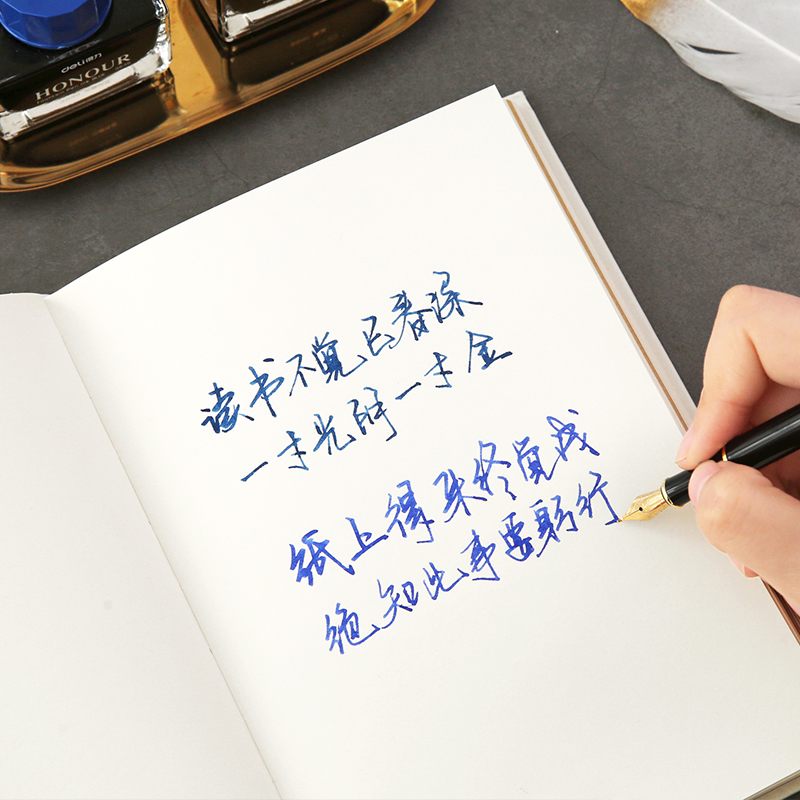 deli得力
HONOUR
读书不觉已春深
一寸光阴一寸金
纸上得来终觉浅
绝知此事要躬行